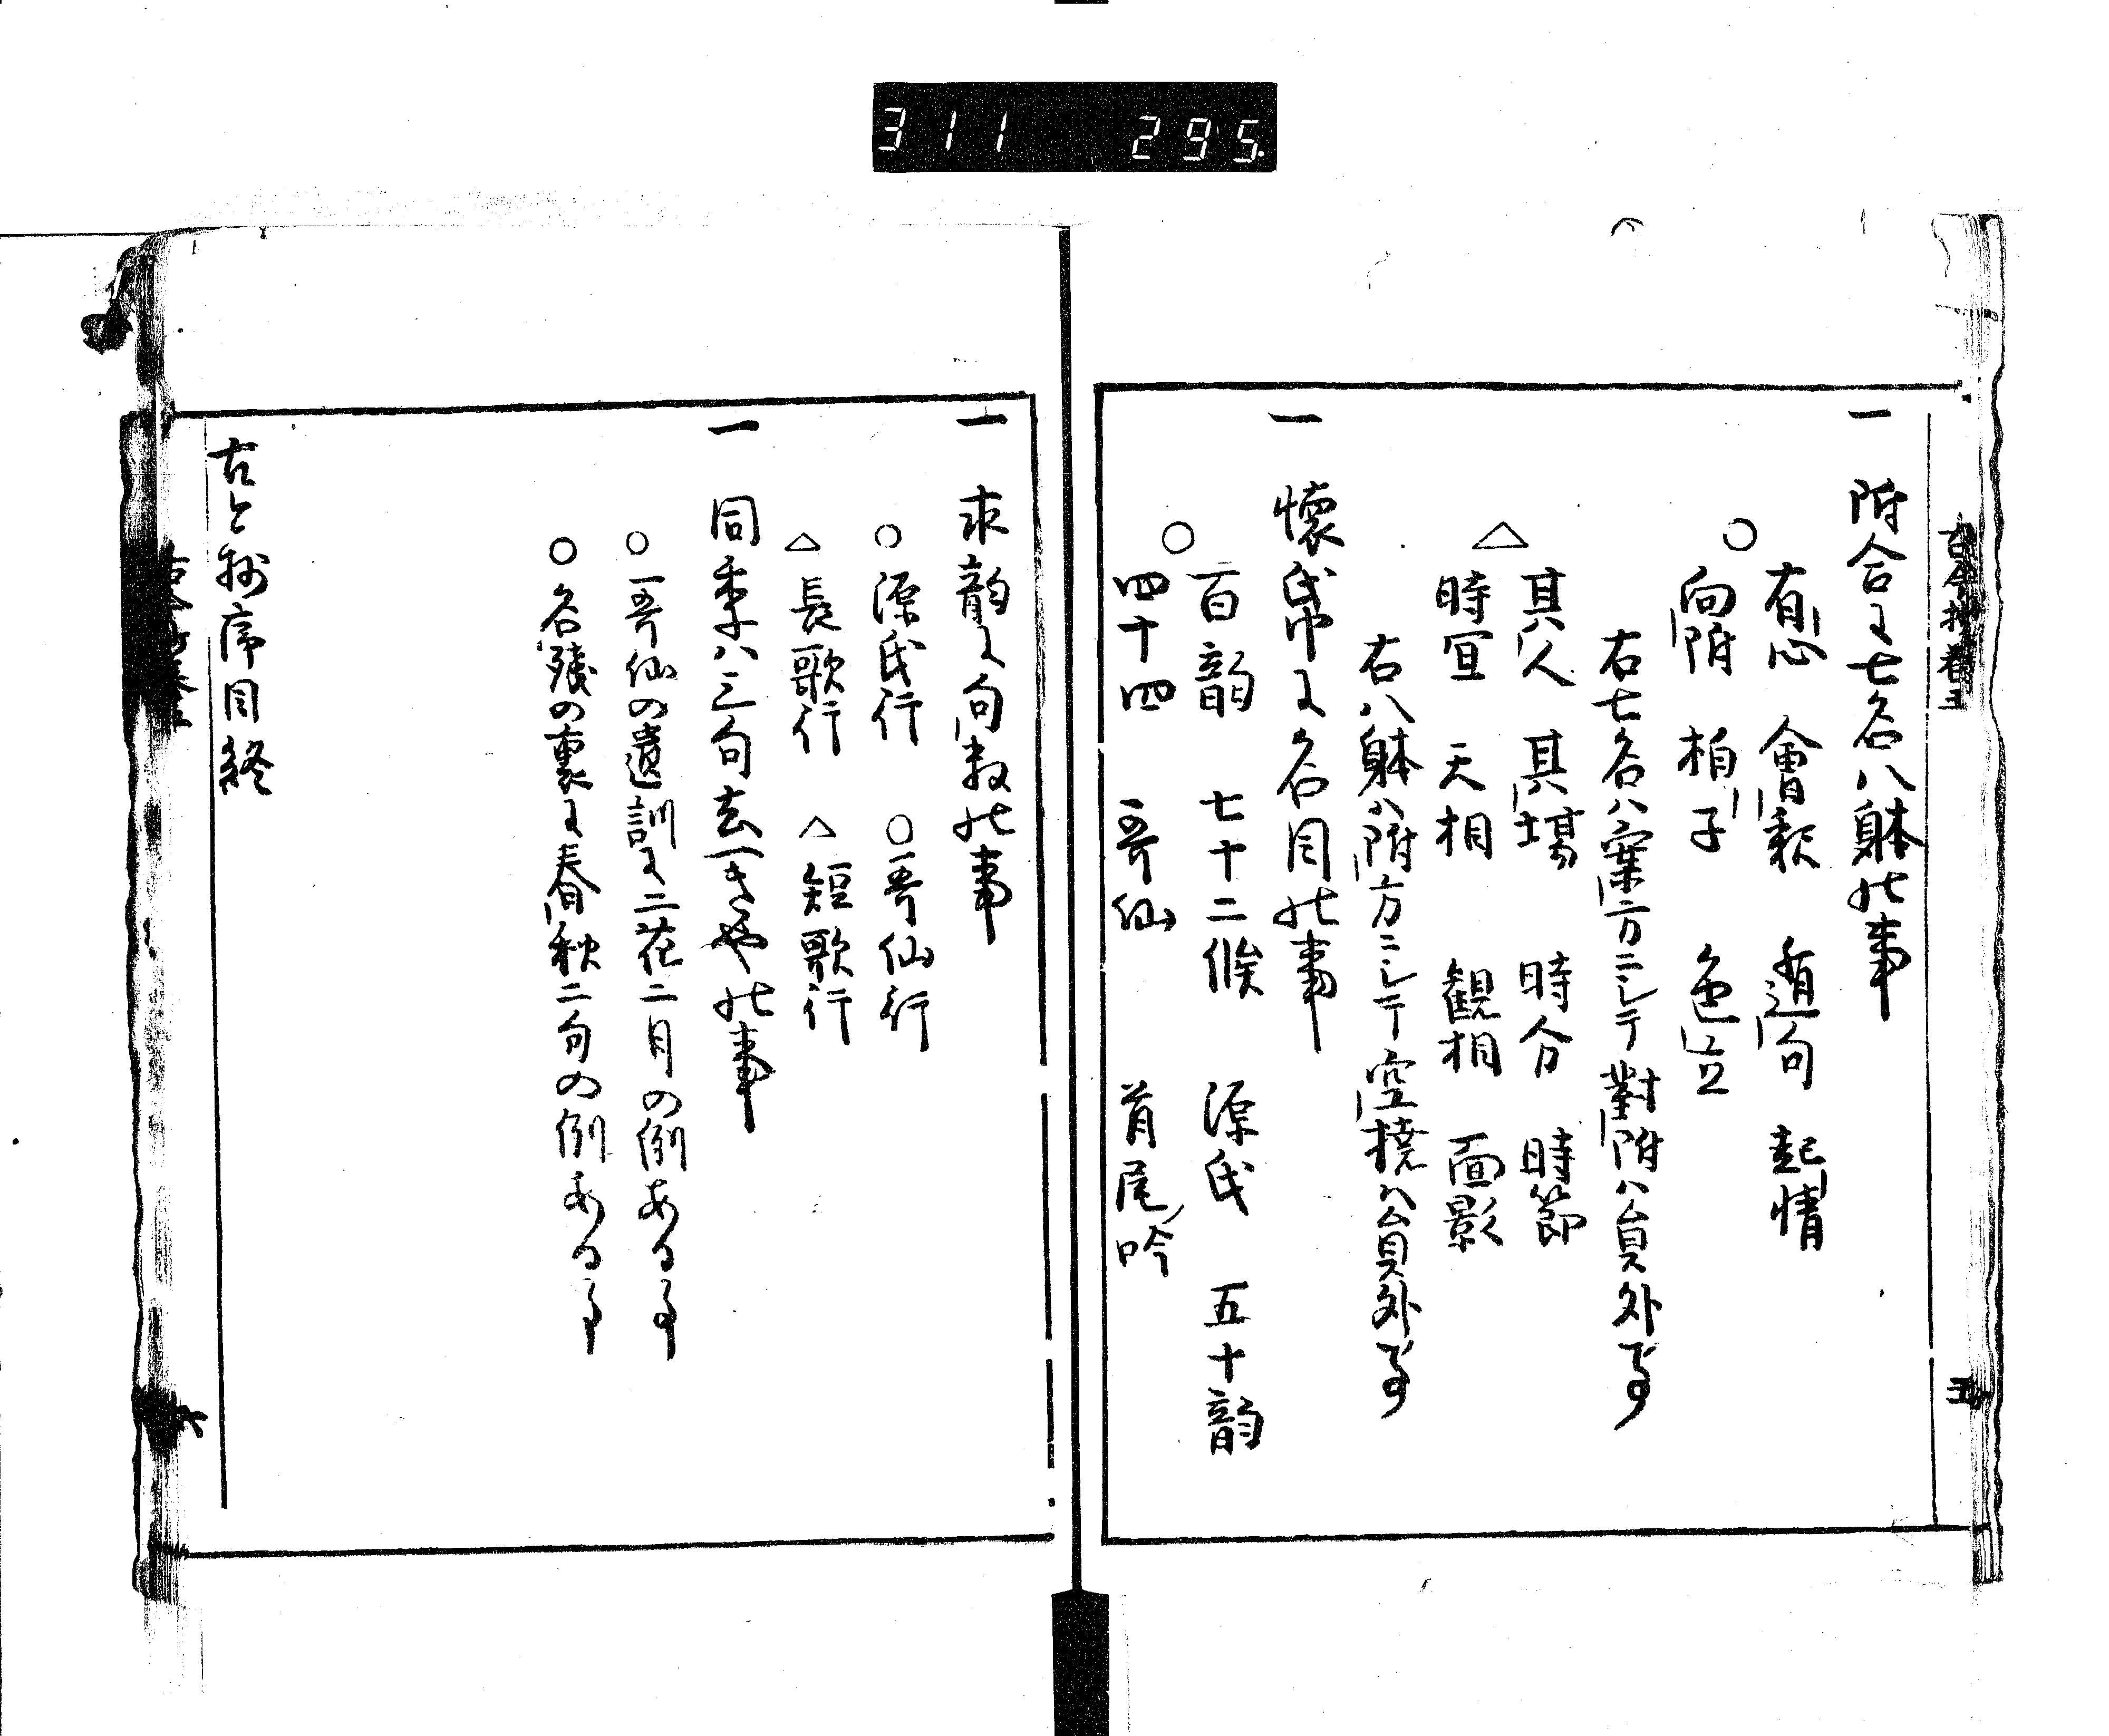 311 295
古今抄巻五
一 附合に七名八躰の事
有心 會釈 遁句 起情
○
向附 拍子 色立
右七名ハ案方ニシテ對附ハ員外事
其人 其場 時分 時節
△
時宜 天相 觀相 面影
右八躰ハ附方ニシテ空撓ハ員外事
一 懷帋に名目の事
百韻 七十二候 源氏 五十韻
○
四十四 哥仙 首尾吟
五
一 求韻に句数の事
○源氏行 ○哥仙行
△長歌行 △短歌行
一 同季ハ三句去べきや の事
○哥仙の遺訓に二花二月の例ある事
○名殘の裏に春秋二句の例ある事
古今抄序目終
六